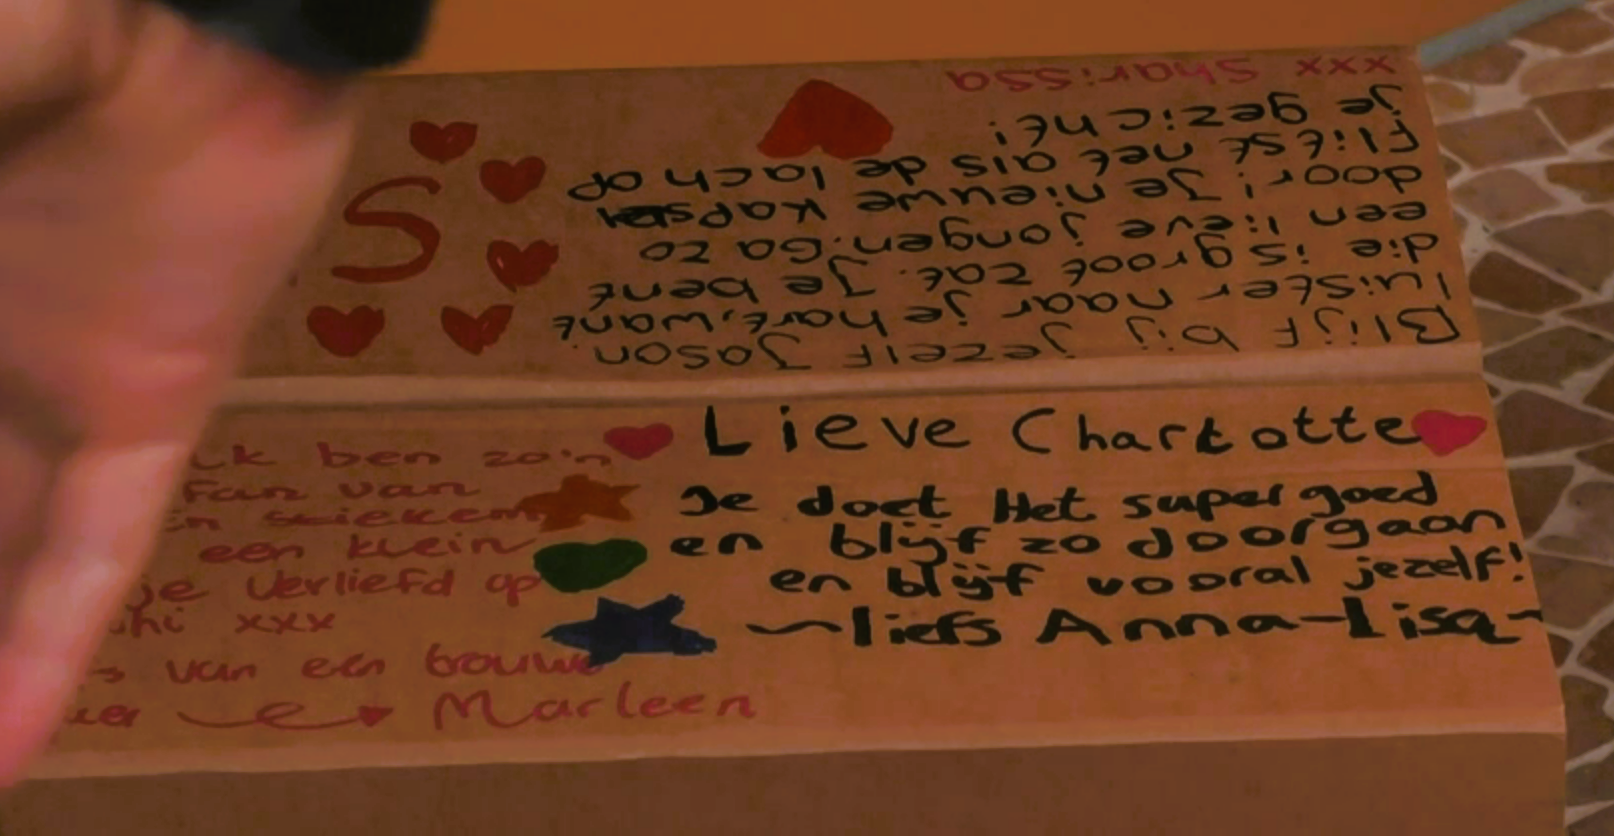 Blijf bij jezelf Jason.
luister naar je hart, want
die is groot zat. Je bent
een lieve jongen. Ga zo
door! Je nieuwe kapsel
flitst net als de lach op
je gezicht!
xxx Sharissa
S
Lieve Charlotte
Je doet Het super goed
en blijf zo doorgaan
en blijf vooral jezelf!
~liefs Anna-Lisa~
ik ben zo'n
Fan van
en stiekem
een klein
je verliefd op
xxx
van een trouwe
Marleen